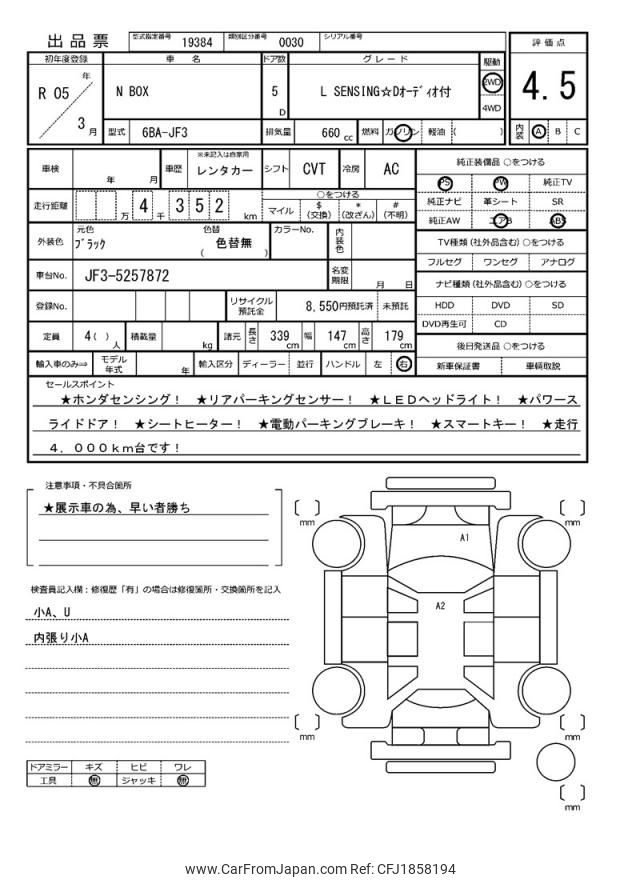 出品票 型式指定番号 19384 類別区分番号 0030 シリアル番号
評価点
4.5
内装 A B C
初年度登録 車名 ドア数 グレード 駆動
R 05 年 3 月 N BOX 5 D L SENSING☆Dオーディオ付 2WD 4WD
型式 6BA-JF3 排気量 660 cc 燃料 ガソリン 軽油 ( )
車検 年 月 車歴 ※未記入は自家用 レンタカー シフト CVT 冷房 AC
走行距離 万 4 千 3 5 2 km ○をつける
マイル $(交換) *(改ざん) #(不明)
外装色 元色 ブラック 色替 ( 色替無 ) カラーNo. 内装色
車台No. JF3-5257872 名変期限 月 日
登録No. リサイクル預託金 8,550円預託済 未預託
定員 4( )人 積載量 kg 諸元 長さ 339 cm 幅 147 cm 高さ 179 cm
輸入車のみ⇒ モデル年式 年 輸入区分 ディーラー 並行 ハンドル 左 右
純正装備品 ○をつける
PS PW 純正TV
純正ナビ 革シート SR
純正AW エアB ABS
TV種類(社外品含む)○をつける
フルセグ ワンセグ アナログ
ナビ種類(社外品含む)○をつける
HDD DVD SD
DVD再生可 CD
後日発送品 ○をつける
新車保証書 車輌取説
セールスポイント
★ホンダセンシング! ★リアパーキングセンサー! ★LEDヘッドライト! ★パワース
ライドドア! ★シートヒーター! ★電動パーキングブレーキ! ★スマートキー! ★走行
4.000km台です!
注意事項・不具合箇所
★展示車の為、早い者勝ち
検査員記入欄:修復歴「有」の場合は修復箇所・交換箇所を記入
小A、U
内張り小A
ドアミラー キズ ヒビ ワレ
工具 無 ジャッキ 無
mm
mm
A1
A2
mm
mm
mm
www.CarFromJapan.com Ref: CFJ1858194